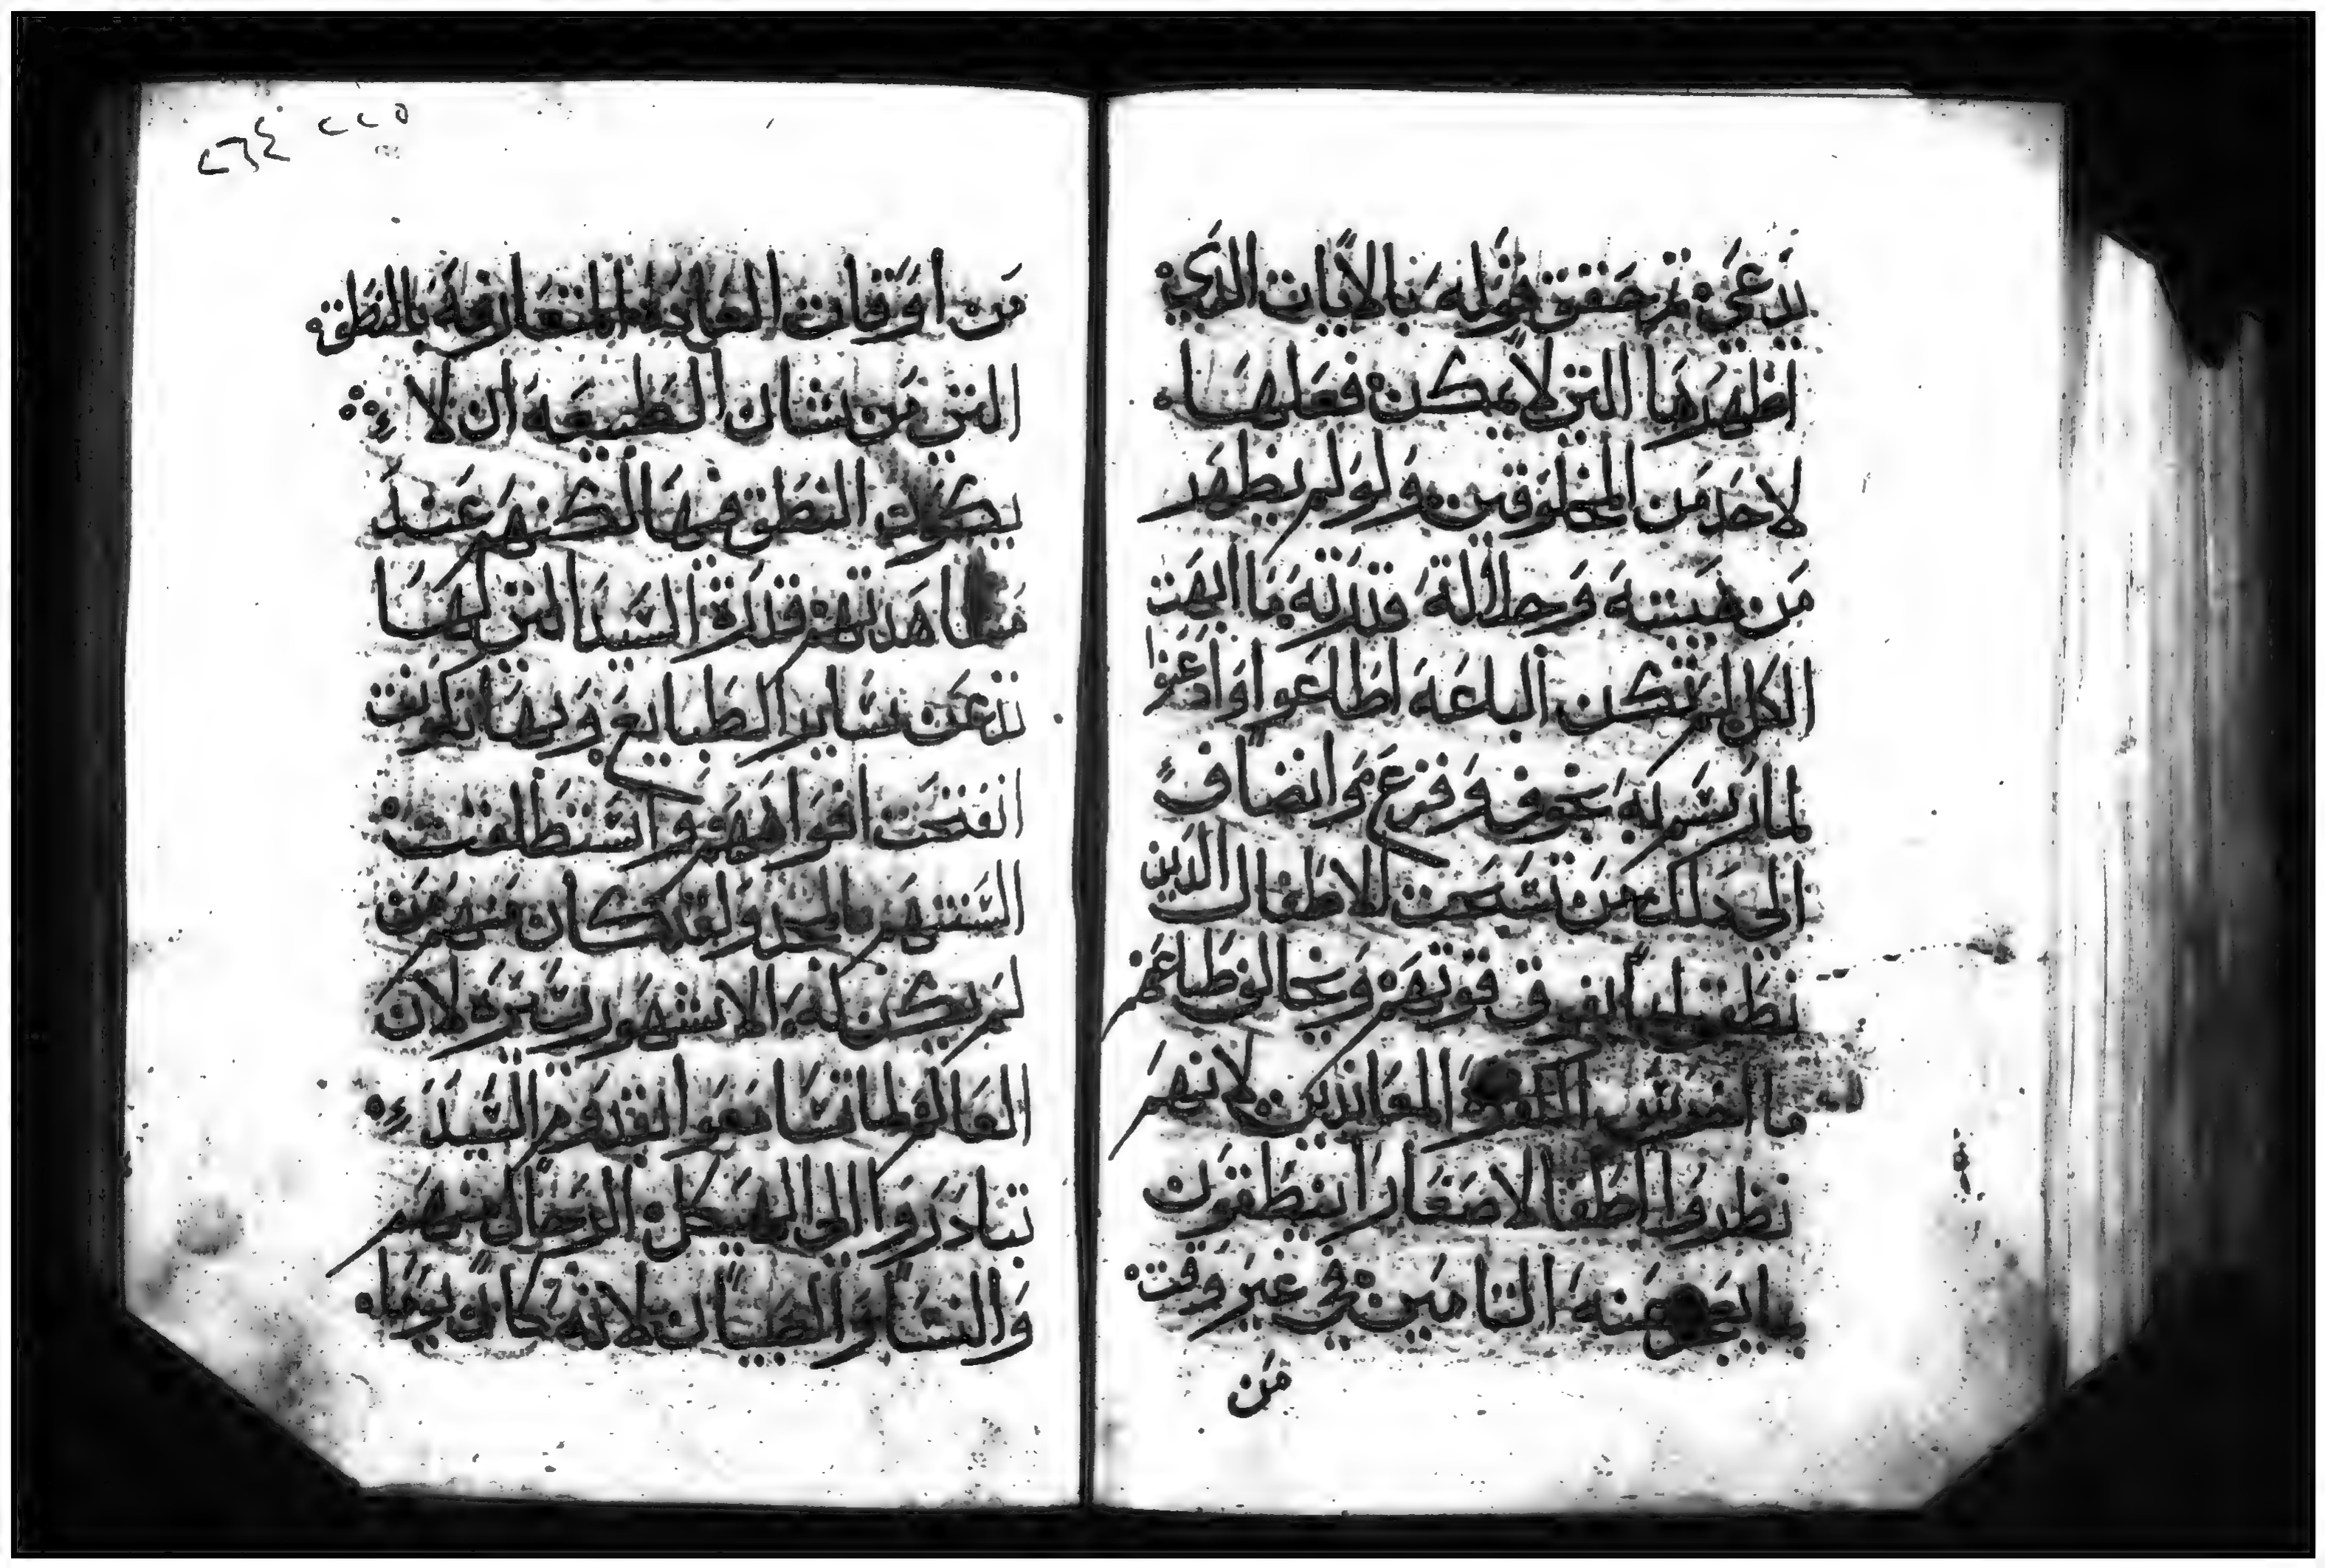 يدعي ثم حقق قوله بالايات الدي
اظهرها التي لا يمكن فعلها
لاحد من المخلوقين ولو لم يظهر
من هيبته وجلالة قدرته ما ابهت
الكل لم تكن الباعة اطاعوا وادعنوا
لما رسم به بخوف وفزع وانضاف
الي دلك من تسبحت الاطفال الدين
نطقت لما يفوق قوتهم وبخالف طباعهم
ما اخرس الكفرة المعاندين لانهم
نظروا اطفالا صغارا ينطقون
بما يعجز عنه التامين في غير وقت
من
٢٢٥
٢٦٤
من اوقات العادة المتعارفة بالنطق
التي من شان الطبيعة ان لا
يكون النطق فيها لكنهم عند
مشاهدتهم قدرة السيد التي لها
تدعن ساير الطبايع وبها تكونت
انفتحت افواههم واستنطلقت
السنتهم بالمجد ولقد كان منهم من
لم يكن له الا شهور يسيرة لان
العالم لما تسامعوا بقدوم السيد
تبادروا الي الهيكل الرجال منهم
والنسا والصبيان لانه كان يوما